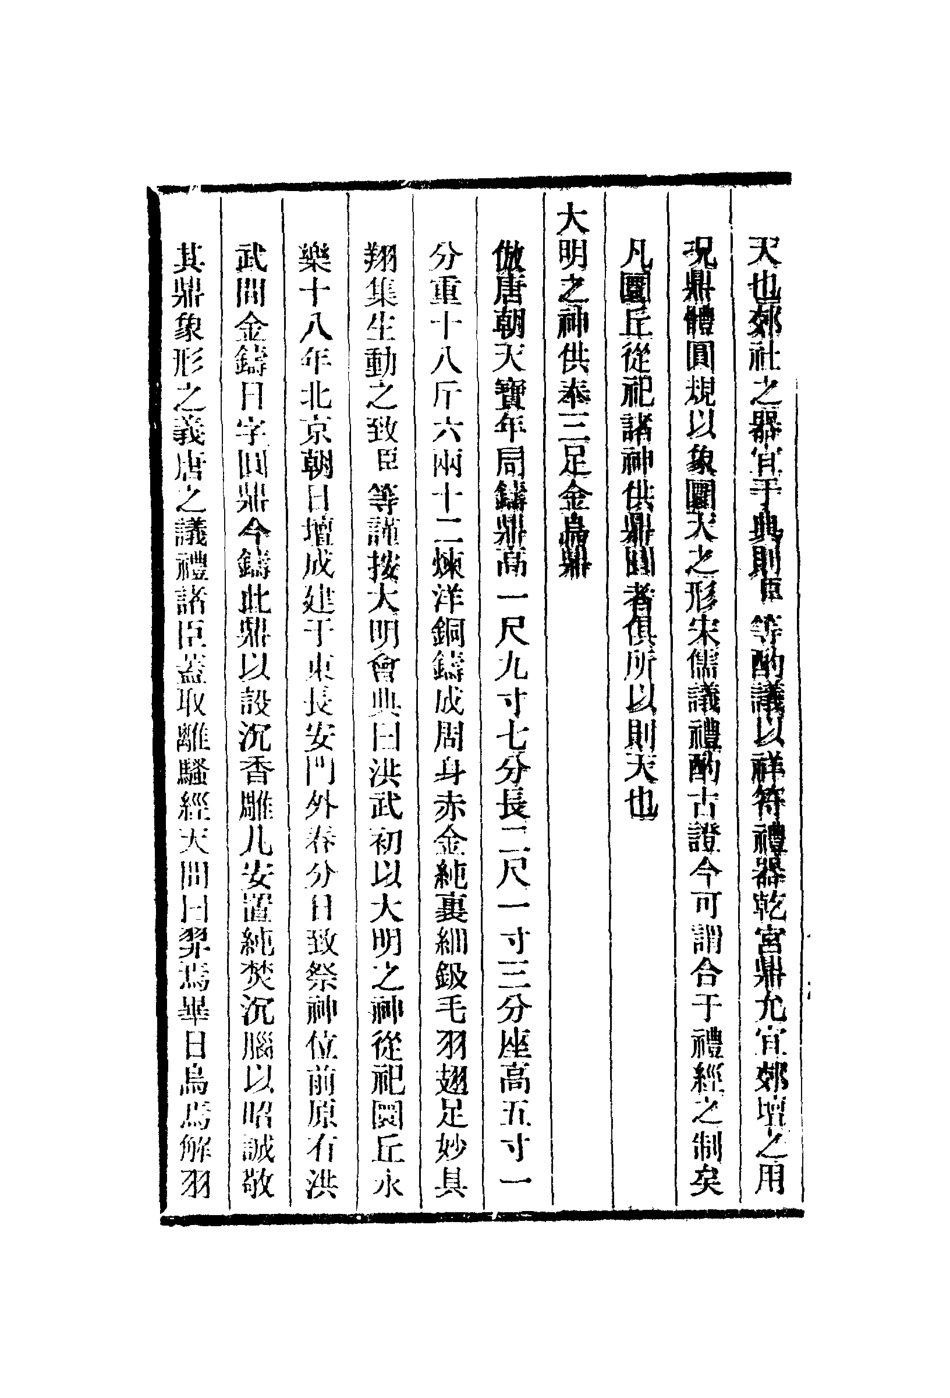 天也郊社之器宜乎典則臣等酌議以祥符禮器乾宮鼎允宜郊壇之用
况鼎體圓規以象圜天之形宋儒議禮酌古證今可謂合于禮經之制矣
凡圜丘從祀諸神供鼎圓者俱所以則天也
大明之神供奉三足金烏鼎
倣唐朝天寶年同鑄鼎高一尺九寸七分長二尺一寸三分座高五寸一
分重十八斤六兩十二煉洋銅鑄成周身赤金純裹細鈒毛羽翅足妙具
翔集生動之致臣等謹按大明會典曰洪武初以大明之神從祀圜丘永
樂十八年北京朝日壇成建于東長安門外春分日致祭神位前原有洪
武間金鑄日字圓鼎今鑄此鼎以設沉香雕几安置純焚沉腦以昭誠敬
其鼎象形之義唐之議禮諸臣蓋取離騷經天問曰羿焉畢日烏焉解羽